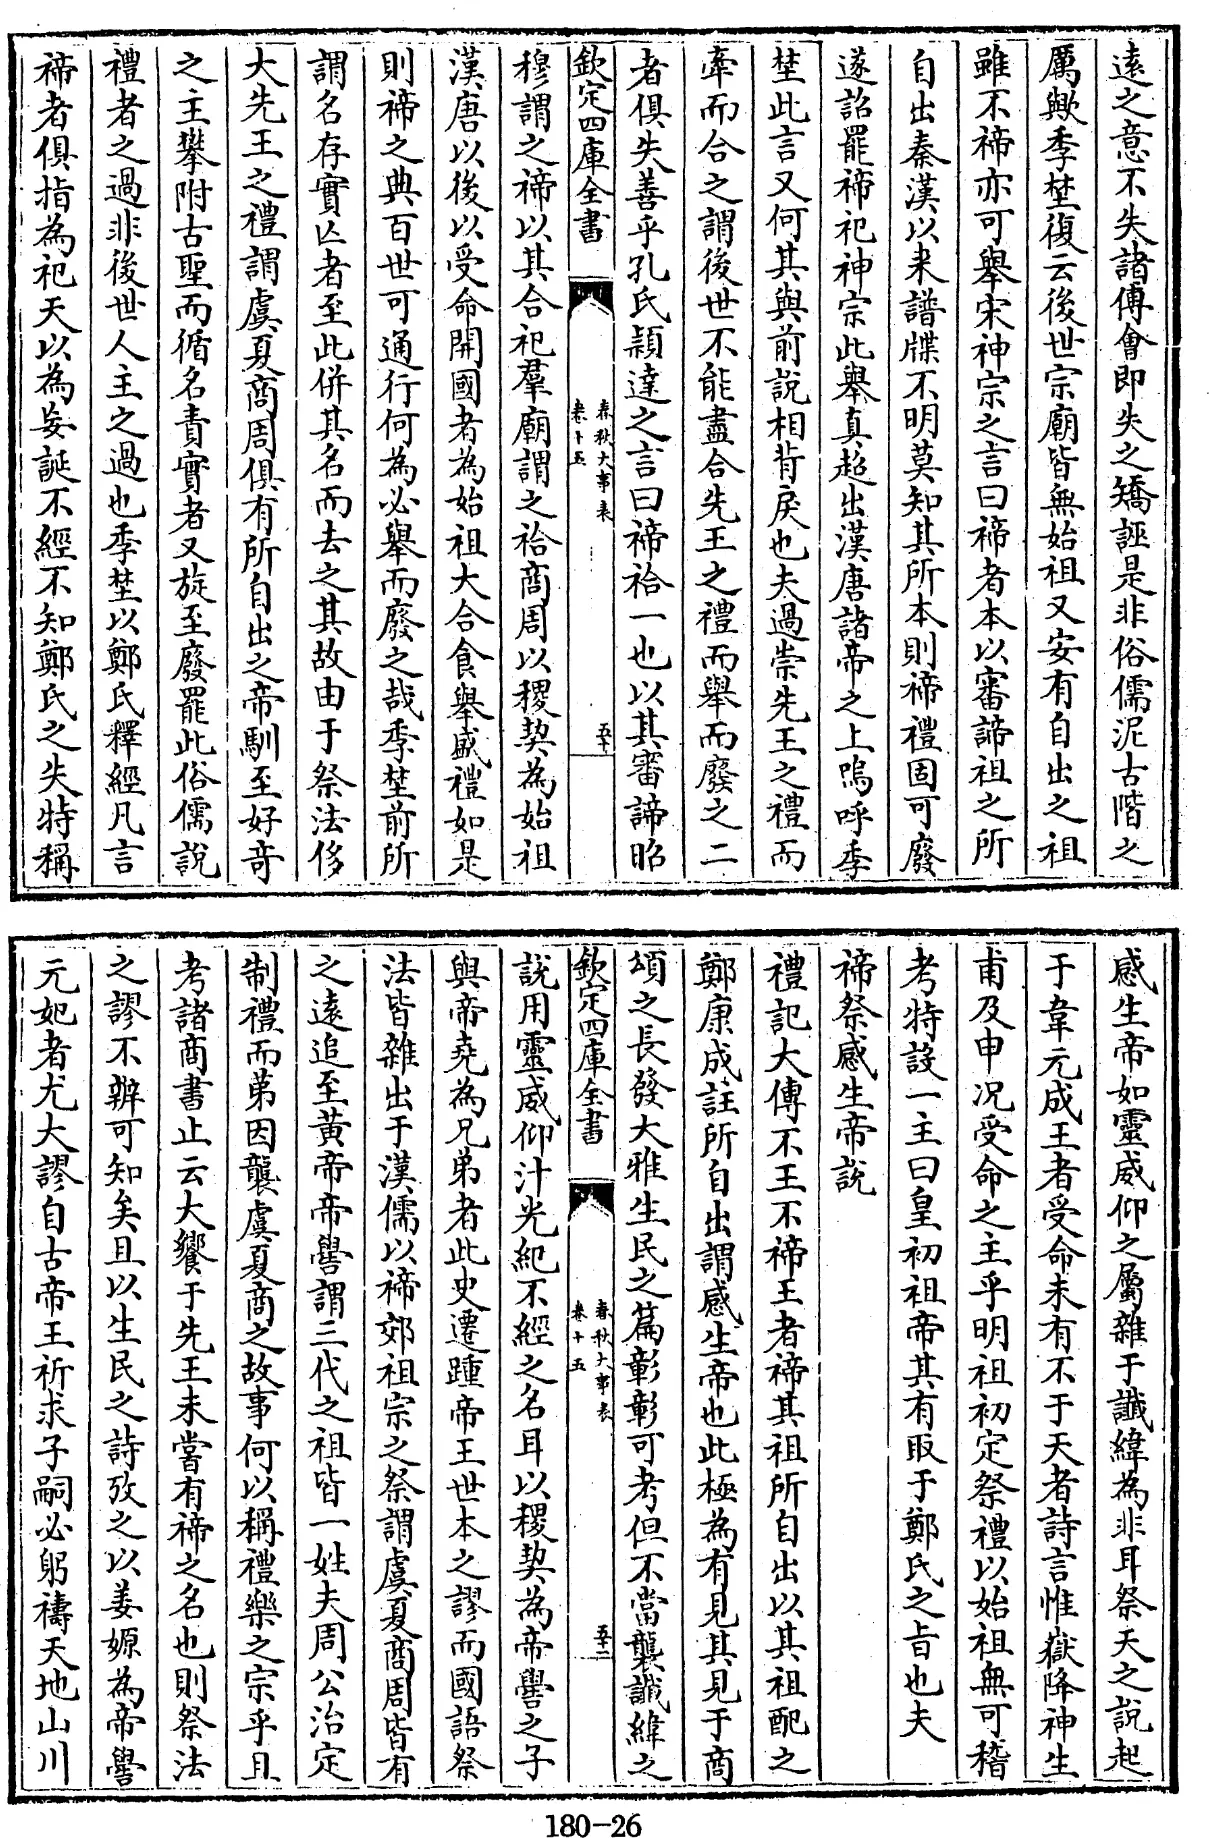 遠之意不失諸傅會即失之矯誣是非俗儒泥古階之
厲歟季埜復云後世宗廟皆無始祖又安有自出之祖
雖不禘亦可舉宋神宗之言曰禘者本以審諦祖之所
自出秦漢以来譜牒不明莫知其所本則禘禮固可廢
遂詔罷禘祀神宗此舉真超出漢唐諸帝之上嗚呼季
埜此言又何其與前說相背戾也夫過崇先王之禮而
牽而合之謂後世不能盡合先王之禮而舉而廢之二
者俱失善乎孔氏穎達之言曰禘祫一也以其審諦昭
欽定四庫全書
春秋大事表
卷十五
五十一
穆謂之禘以其合祀羣廟謂之祫商周以稷契為始祖
漢唐以後以受命開國者為始祖大合食舉盛禮如是
則禘之典百世可通行何為必舉而廢之哉季埜前所
謂名存實亾者至此併其名而去之其故由于祭法侈
大先王之禮謂虞夏商周俱有所自出之帝馴至好竒
之主攀附古聖而循名責實者又旋至廢罷此俗儒說
禮者之過非後世人主之過也季埜以鄭氏釋經凡言
禘者俱指為祀天以為妄誕不經不知鄭氏之失特稱
感生帝如靈威仰之屬雜于讖緯為非耳祭天之説起
于韋元成王者受命未有不于天者詩言惟嶽降神生
甫及申况受命之主乎明祖初定祭禮以始祖無可稽
考特設一主曰皇初祖帝其有取于鄭氏之旨也夫
禘祭感生帝說
禮記大傳不王不禘王者禘其祖所自出以其祖配之
鄭康成註所自出謂感生帝也此極為有見其見于商
頌之長發大雅生民之篇彰彰可考但不當襲讖緯之
欽定四庫全書
春秋大事表
卷十五
五十二
說用靈威仰汁光紀不經之名耳以稷契為帝嚳之子
與帝堯為兄弟者此史遷踵帝王世本之謬而國語祭
法皆雜出于漢儒以禘郊祖宗之祭謂虞夏商周皆有
之遠追至黃帝帝嚳謂三代之祖皆一姓夫周公治定
制禮而第因襲虞夏商之故事何以稱禮樂之宗乎且
考諸商書止云大饗于先王未嘗有禘之名也則祭法
之謬不辨可知矣且以生民之詩攷之以姜嫄為帝嚳
元妃者尤大謬自古帝王祈求子嗣必躬禱天地山川
180-26